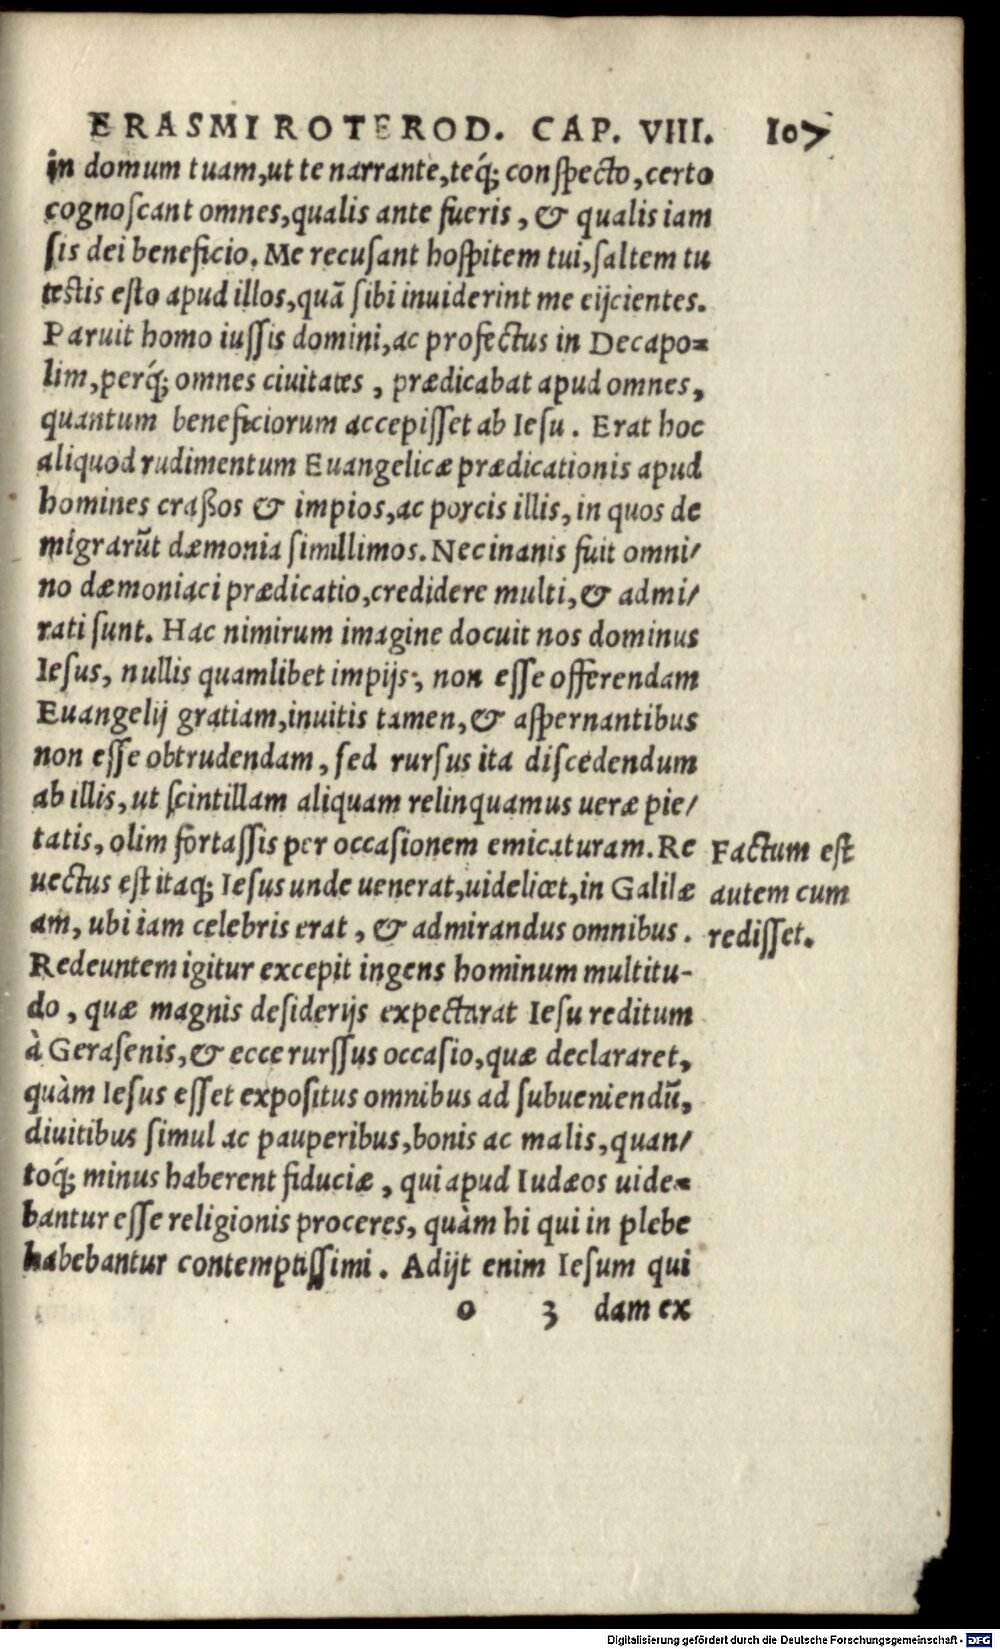 ERASMI ROTEROD. CAP. VIII. 107
in domum tuam, ut te narrante, teq́; conſpecto, certo
cognoſcant omnes, qualis ante fueris, & qualis iam
ſis dei beneficio. Me recuſant hoſpitem tui, ſaltem tu
teſtis eſto apud illos, quã ſibi inuiderint me eijcientes.
Paruit homo iuſſis domini, ac profectus in Decapo=
lim, perq́; omnes ciuitates, prædicabat apud omnes,
quantum beneficiorum accepiſſet ab Ieſu. Erat hoc
aliquod rudimentum Euangelicæ prædicationis apud
homines craßos & impios, ac porcis illis, in quos de
migrarũt dæmonia ſimillimos. Nec inanis fuit omni/
no dæmoniaci prædicatio, credidere multi, & admi/
rati ſunt. Hac nimirum imagine docuit nos dominus
Ieſus, nullis quamlibet impijs, non eſſe offerendam
Euangelij gratiam, inuitis tamen, & aſpernantibus
non eſſe obtrudendam, ſed rurſus ita diſcedendum
ab illis, ut ſcintillam aliquam relinquamus ueræ pie/
tatis, olim fortaſſis per occaſionem emicaturam. Re
uectus eſt itaq; Ieſus unde uenerat, uidelicet, in Galilæ
am, ubi iam celebris erat, & admirandus omnibus.
Redeuntem igitur excepit ingens hominum multitu-
do, quæ magnis deſiderijs expectarat Ieſu reditum
à Geraſenis, & ecce rurſſus occaſio, quæ declararet,
quàm Ieſus eſſet expoſitus omnibus ad ſubueniendũ,
diuitibus ſimul ac pauperibus, bonis ac malis, quan/
toq́; minus haberent fiduciæ, qui apud Iudæos uide=
bantur eſſe religionis proceres, quàm hi qui in plebe
habebantur contemptiſſimi. Adijt enim Ieſum qui
o 3 dam ex
Factum eſt
autem cum
rediſſet.
Digitalisierung gefördert durch die Deutsche Forschungsgemeinschaft - DFG